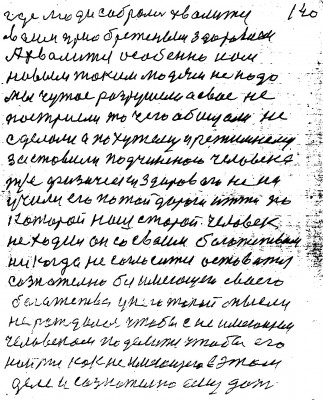 где люди собрались хвалити 140
в дели приобретеным здоровием
А хвалити особенно нам
новым таким людям не надо
мы чужое разрушили а свое не
построили то чего обищали не
сделали а по хужему прежнему
заставили подчиненого человека
уже физически здорового не на
учили его по той дороги итти по
которой наш старой человек
не ходил он со своим богатством
ни когда не согласится остоватся
сознательно бы имеющего своего
богатства у него такой смысли
не рождался чтобы с не имеющим
человеком поделити чтобы его
найти как не имеющего в этом
деле и сознательно ему дать